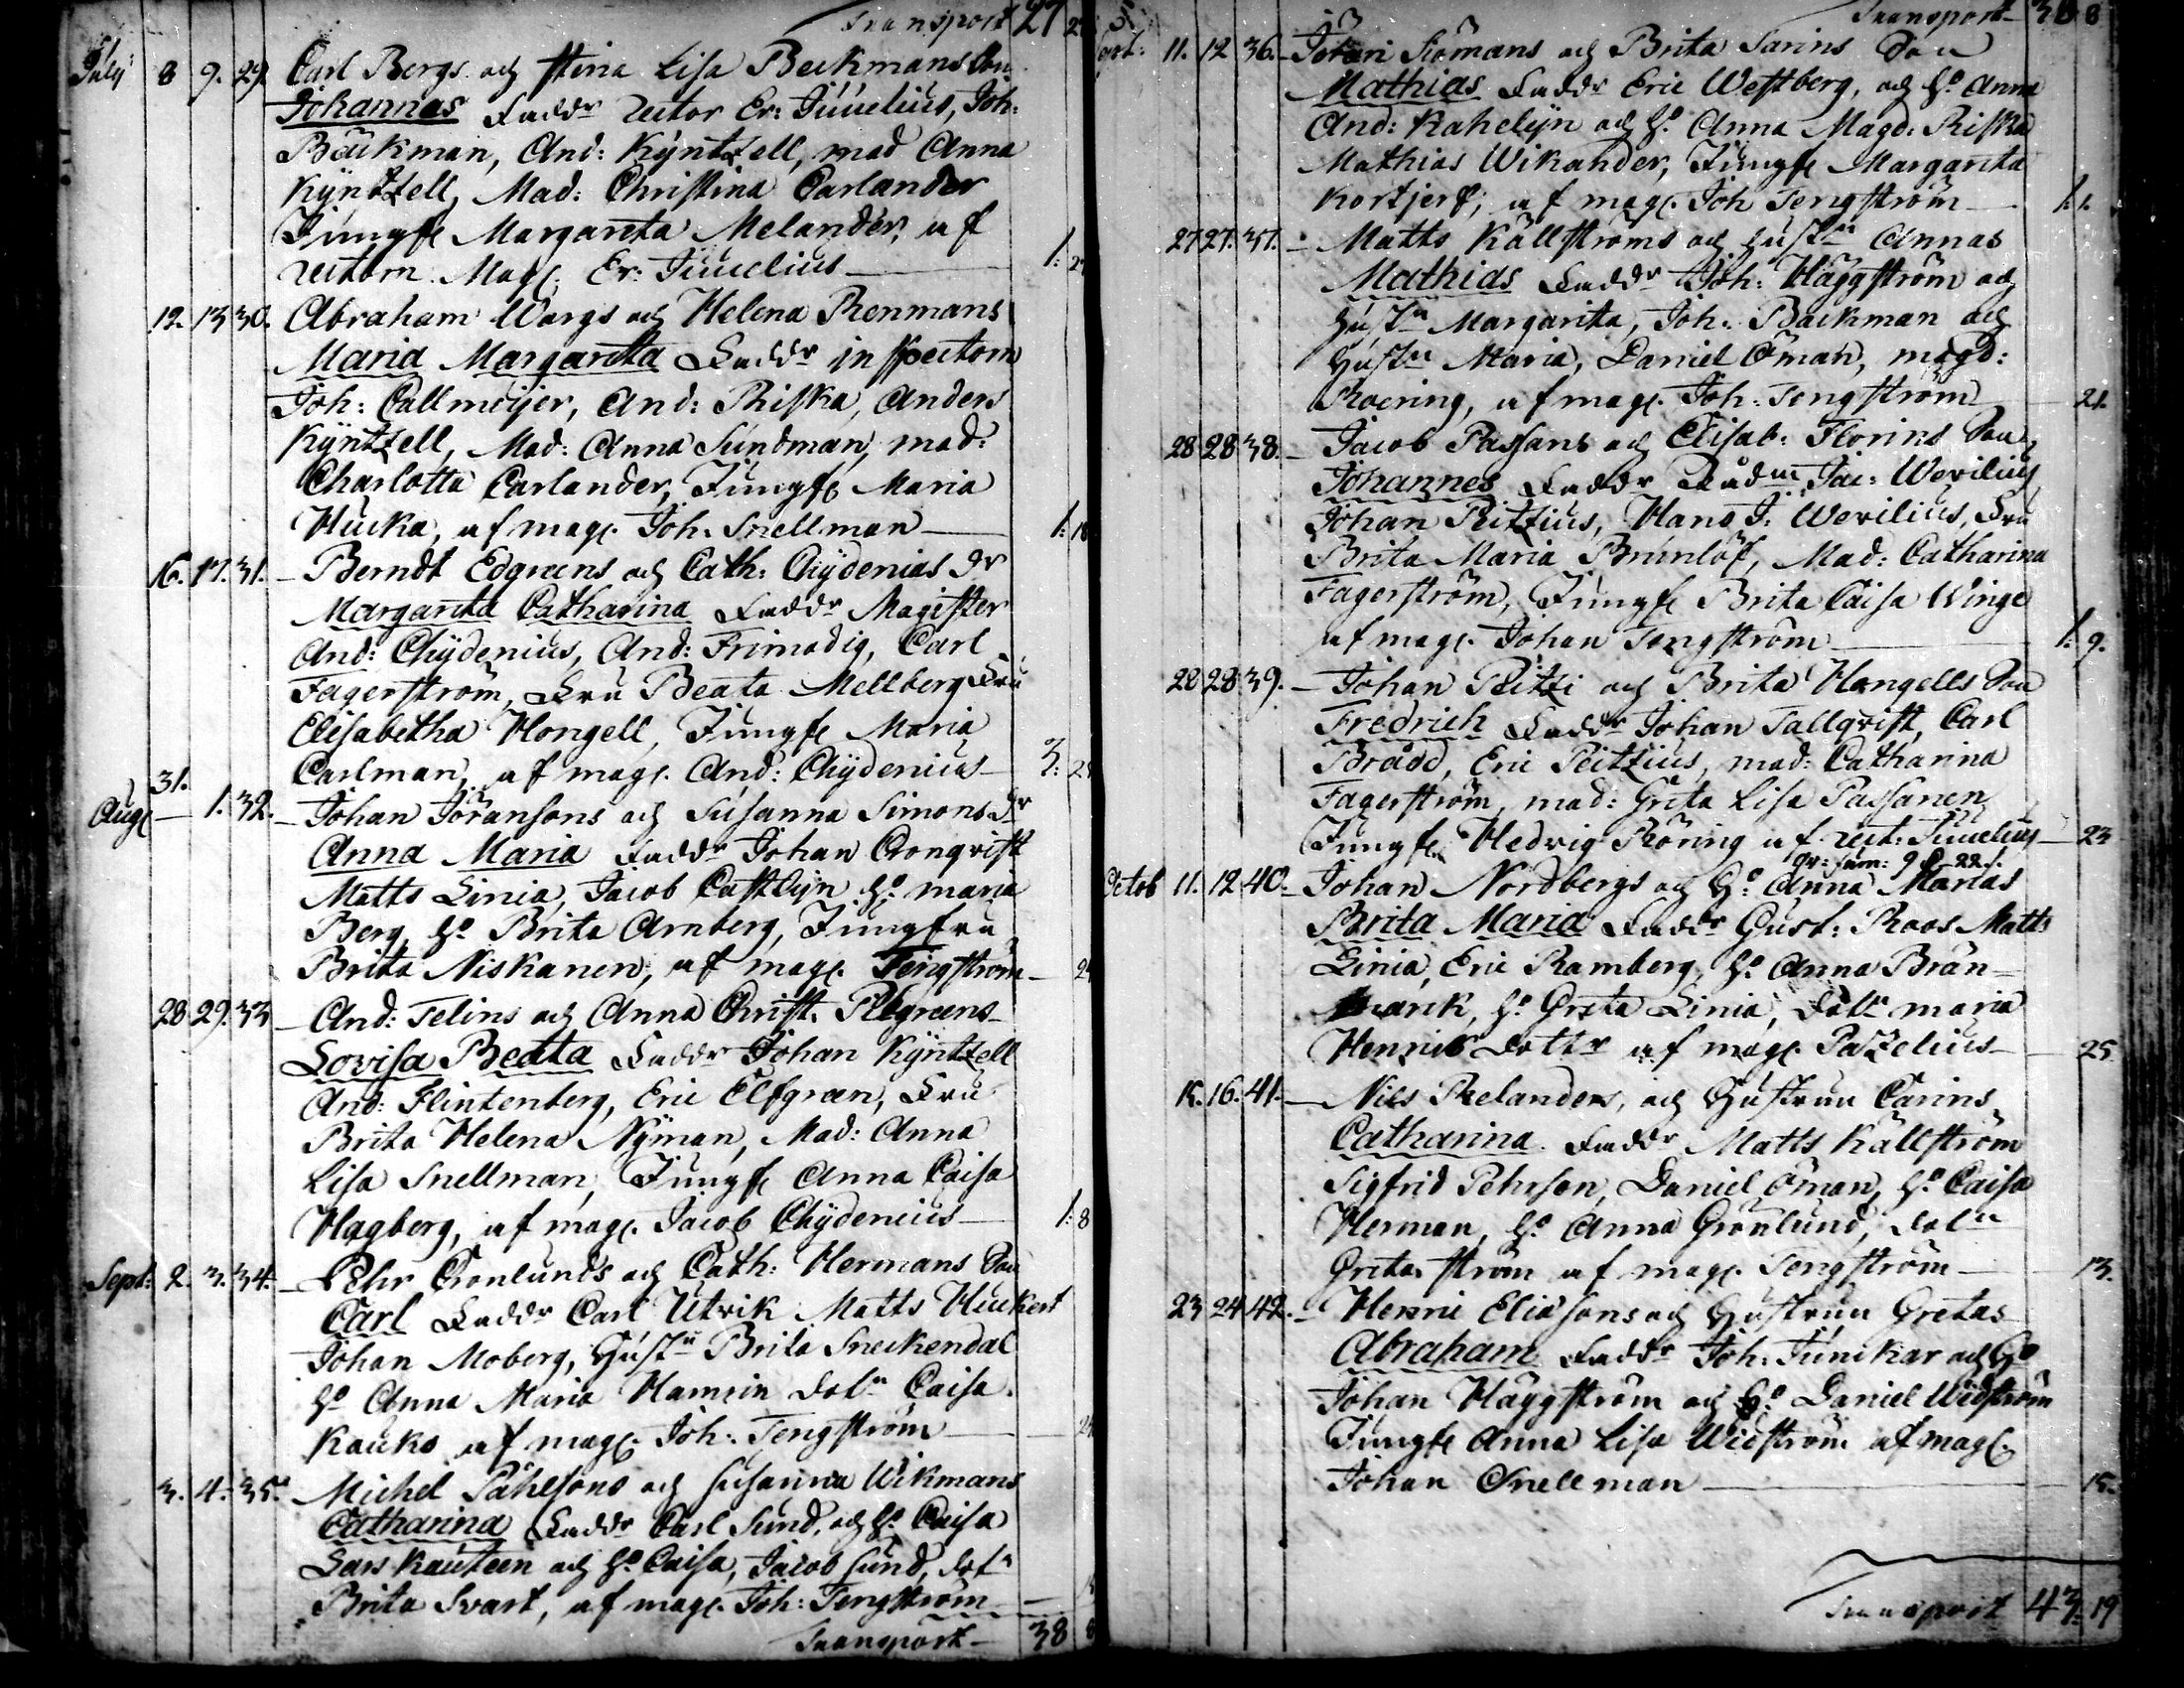 Transport 27
July 8 9. 29. Carl Bergs och Stina Lisa Backmans Son
Johannes Faddr rector Er: Juvelius, Joh:
Bäckman, And: Kÿntzell, mad Anna
Kÿntzell, Mad: Christina Carlander
Jungfr Margareta Melander, af
rectorn Mag. Er: Juvelius 1:
12. 13 30. Abraham Wargs och Helena Renmans
Maria Margareta Faddr inspectorn
Joh: Callmeijer, And: Riska, Anders
Kÿntzell, Mad: Anna Sundman, mad:
Charlotta Carlander, Jungfr Maria
Hucka, af mag. Joh. Snellman 1: 18
16. 17. 31. Berndt Edgrens och Cath: Chÿdenias dr
Margareta Catharina Faddr Magister
And: Chÿdenius, And: Frimodig, Carl
Fagerström, Fru Beata Mellberg Fru
Elisabetha Hongell, Jungfr Maria
Carlman, af mag. And: Chÿdenius 3:
Aug 31. 1. 32. Johan Jöransons och Susanna Simons dr
Anna Maria Faddr Johan Cronqvist
Matts Linia, Jacob Castelijn ho maria
Berg, ho Brita Arnberg, Jungfru
Brita Niskanen, af mag. Tengström
28 29. 33 And: Telins och Anna Christ. Elfgreens
Lovisa Beata Faddr Johan Kÿntzell
And: Flintenberg, Eric Elfgren, Fru
Brita Helena Nÿman, Mad: Anna
Lisa Snellman, Jungfr Anna Caisa
Hagberg, af mag. Jacob Chÿdenius 1: 8
Sept: 2. 3. 34. Pehr Cronlunds och Cath: Hermans Son
Carl Faddr Carl Utrik Matts Huckert
Johan Moberg, Hustu Brita Sneckendal
ho Anna Maria Hamrin Coln Caisa
Kauko af mag. Joh: Tengström
3. 4. 35. Michel Påhlsons och Susanna Wikmans
Catharina Faddr Carl Sund, och ho Caisa
Lars Kauteen och ho Caisa, Jacob Sund,
Brita Svart, af mag. Joh: Tengström
Transport 38 8
Transport 38 8
11. 12 36. Johan Siömans och Brita Sarins Son
Mathias Faddr Eric Westberg, och ho Anna
And: Kahelijn och ho Anna Magd: Riska
Mathias Wikander, Jungfr Margareta
Kortjerf, af mag. Joh Tengström 1. 1.
27 27. 37. Matts Källströms och Hustru Annas
Mathias Faddr Joh: Häggström och
Hustru Margarita, Joh: Backman och
Hustru Maria, Daniel Öman, magd:
Roering, af mag. Joh: Tengström 21.
28 28 38. Jacob Passans och Elisab: Florins Son
Johannes Faddr Rådm Jac: Werilius
Johan Ritzius, Hans J: Werilius, Fru
Brita Maria Brunlöf, Mad: Catharina
Fagerström, Jungfr Brita Caisa Winge
af mag. Johan Tengström 1. 9.
28 28 39. Johan Ritzi och Brita Hongells Son
Fredrich Faddr Johan Tallqvist, Carl
Brådd, Eric Ritzius, mad: Catharina
Fagerström, mad: Greta Lisa Passanen
Jungfr Hedvig Röring af rect: Juvelius 23
Octob 11. 12. 40. Johan Nordbergs och ho Anna Marias
Brita Maria Faddr Gust: Roos Matts
Linia, Eric Ramberg, ho Anna Brän
mark, ho Greta Linia, maria
Henrics dotter af mag. Pazelius 25
15. 16. 41. Nils Relanders, och Hustrun Carins
Catharina Faddr Matts Källström
Sigfrid Pehrson, Daniel Öman, ho Caisa
Herman, ho Anna Grönlund,
Greta ström af mag. Tengström 13.
23 24 42. Henric Eliasons och Hustrun Gretas
Abraham Faddr Joh: Junikar och ho
Johan Häggström och ho Daniel Widström
Jungfr Anna Lisa Widström af mag.
Johan Snellman 15.
Transport 43. 19